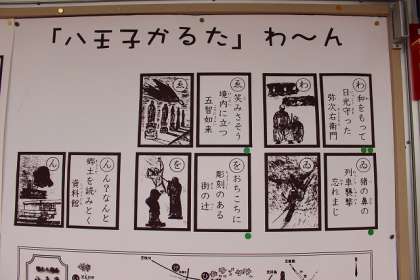 「八王子かるた」わ〜ん
わ
わ
和をもって
日光守った
弥次右衛門
ゑ
ゑ
笑みさそう
境内に立つ
五智如来
ゐ
ゐ
猪の鼻の
列車襲撃
忘れまじ
を
を
をちこちに
彫刻のある
街の辻
ん
ん
ん?なんと
郷土を読みとく
資料館